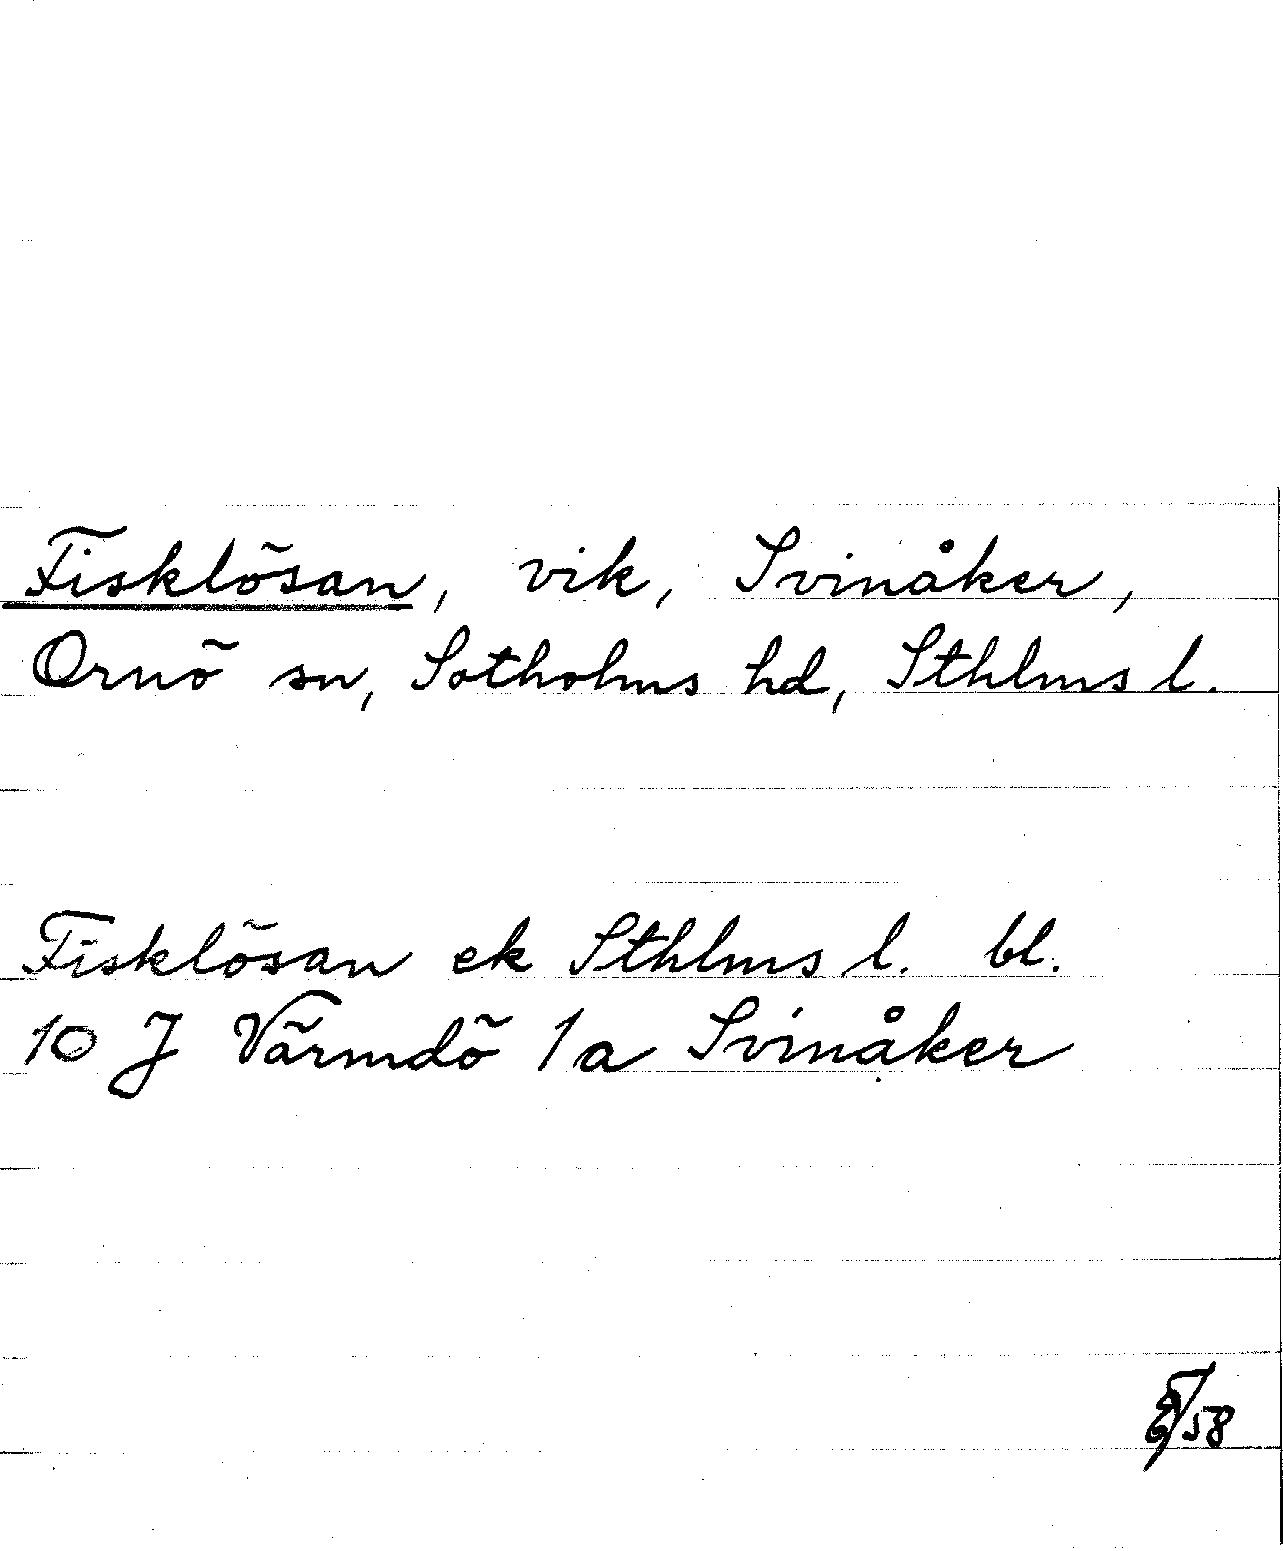 Fisklösan, vik, Svinåker,
Ornö sn, Sotholms hd, Sthlms l.
Fisklösan ek Sthlms l. bl.
10 J Värmdö 1a Svinåker
/58